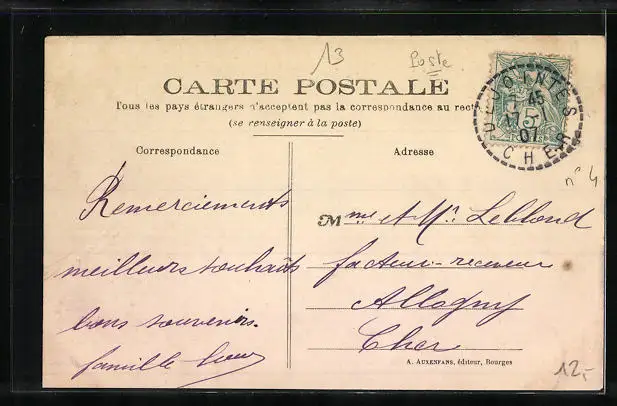 13
Poste
CARTE POSTALE
Tous les pays étrangers n'acceptent pas la correspondance au recto
(se renseigner à la poste)
Correspondance
Adresse
45
17 - 1
07
CHER
5
n° 4
Remerciements
meilleurs souhaits
bons souvenirs.
famille
Mme et Mr. Leblond
facteur-receveur
Allogny
Cher
A. AUXENFANS, éditeur, Bourges
12,-